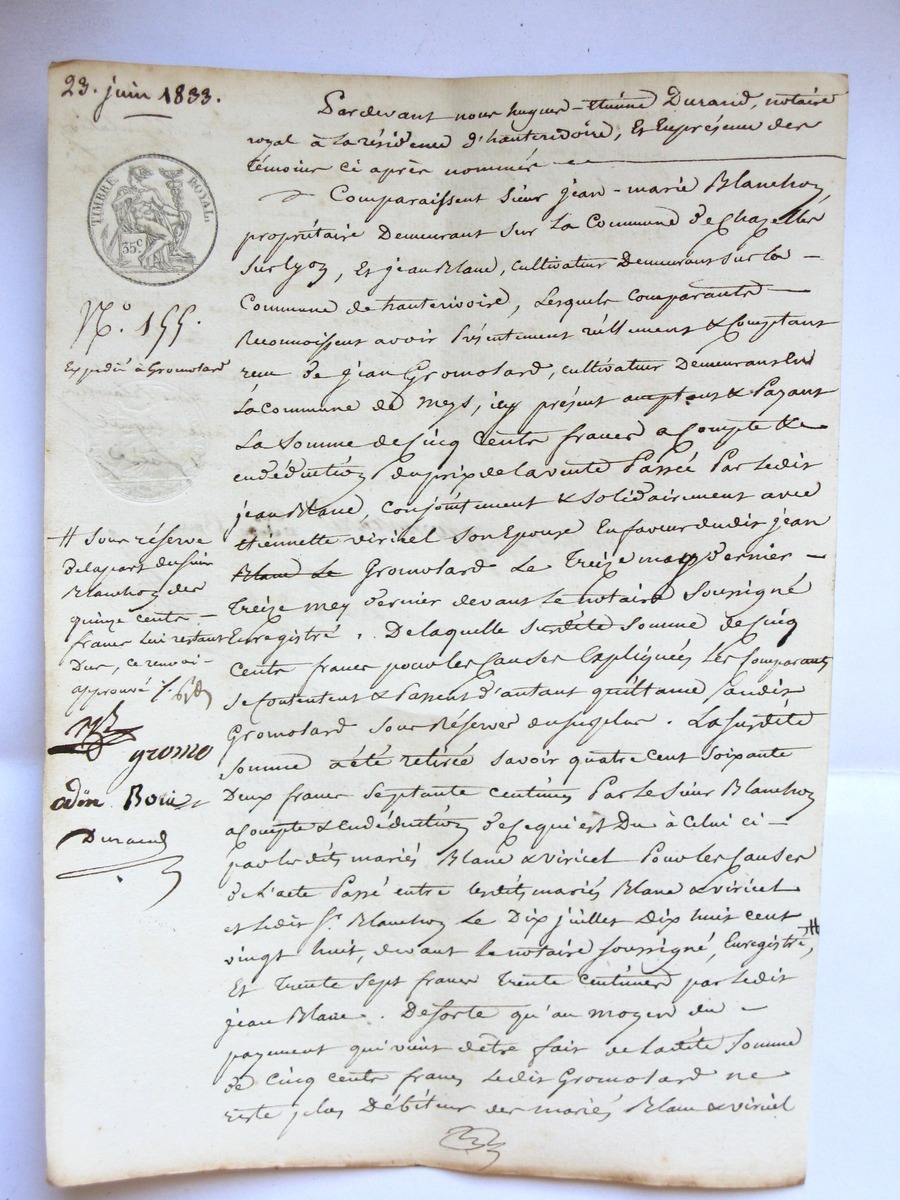 23. juin 1833.
TIMBRE ROYAL.
35 c
N.º 155.
Expédié à Gromolard
Pardevant nous hugues-étienne Durand, notaire
royal à la résidence d'hauterivoire, Et En présence des
témoins ci après nommés
Comparaissent Sieur jean-marie Blanchon
propriétaire Demeurant Sur La Commune de Chazelles
Sur lyon, Et jean Blanc, cultivateur Demeurant Sur la
Commune de hauterivoire, Lesquels Comparants
Reconnoissent avoir Présentement réellement & Comptant
reçu de jean Gromolard, cultivateur Demeurant En
La Commune de Meys, icy présent acceptant & Payant
La Somme de Cinq Cents francs a Compte & en
endéduction du prix de la vente Passée Par Ledit
jean Blanc, Conjointement & Solidairement avec
étiennette viricel Son Epouse En faveur dudit jean
Blanc Le Gromolard Le Treize may Dernier
Treize mey Dernier devant Le notaire Soussigné
Enregistré. De laquelle Susdite Somme de Cinq
Cents francs pour les Causes Expliquées Les Comparants
Se Contentent & Passent d'autant quittance audit
Gromolard Sous Réserves du Surplus. La Susdite
Somme a été retirée Savoir quatre Cent Soixante
Deux francs Septante Centimes Par Le Sieur Blanchon
a Compte & En déduction de Ce qui est Du à Celui ci
par les dits mariés Blanc & viricel Pour les Causes
de L'acte Passé entre lesdits mariés Blanc & viricel
et Ledit Sr. Blanchon Le Dix juillet Dix huit cent
vingt huit, devant Le notaire Soussigné, Enregistré, #
Et Trente Sept francs Trente Centimes par Ledit
jean Blanc. De Sorte qu'au moyen du
payement qui vient d'être fait de Ladite Somme
de Cinq Cents francs Ledit Gromolard ne
reste plus Débiteur des mariés Blanc & viricel
# Sous réserve
de la part du Sieur
Blanchon des
quinze cents
francs Lui restant
Dus, ce renvoi
approuvé
gromo
odin Boui
Durand